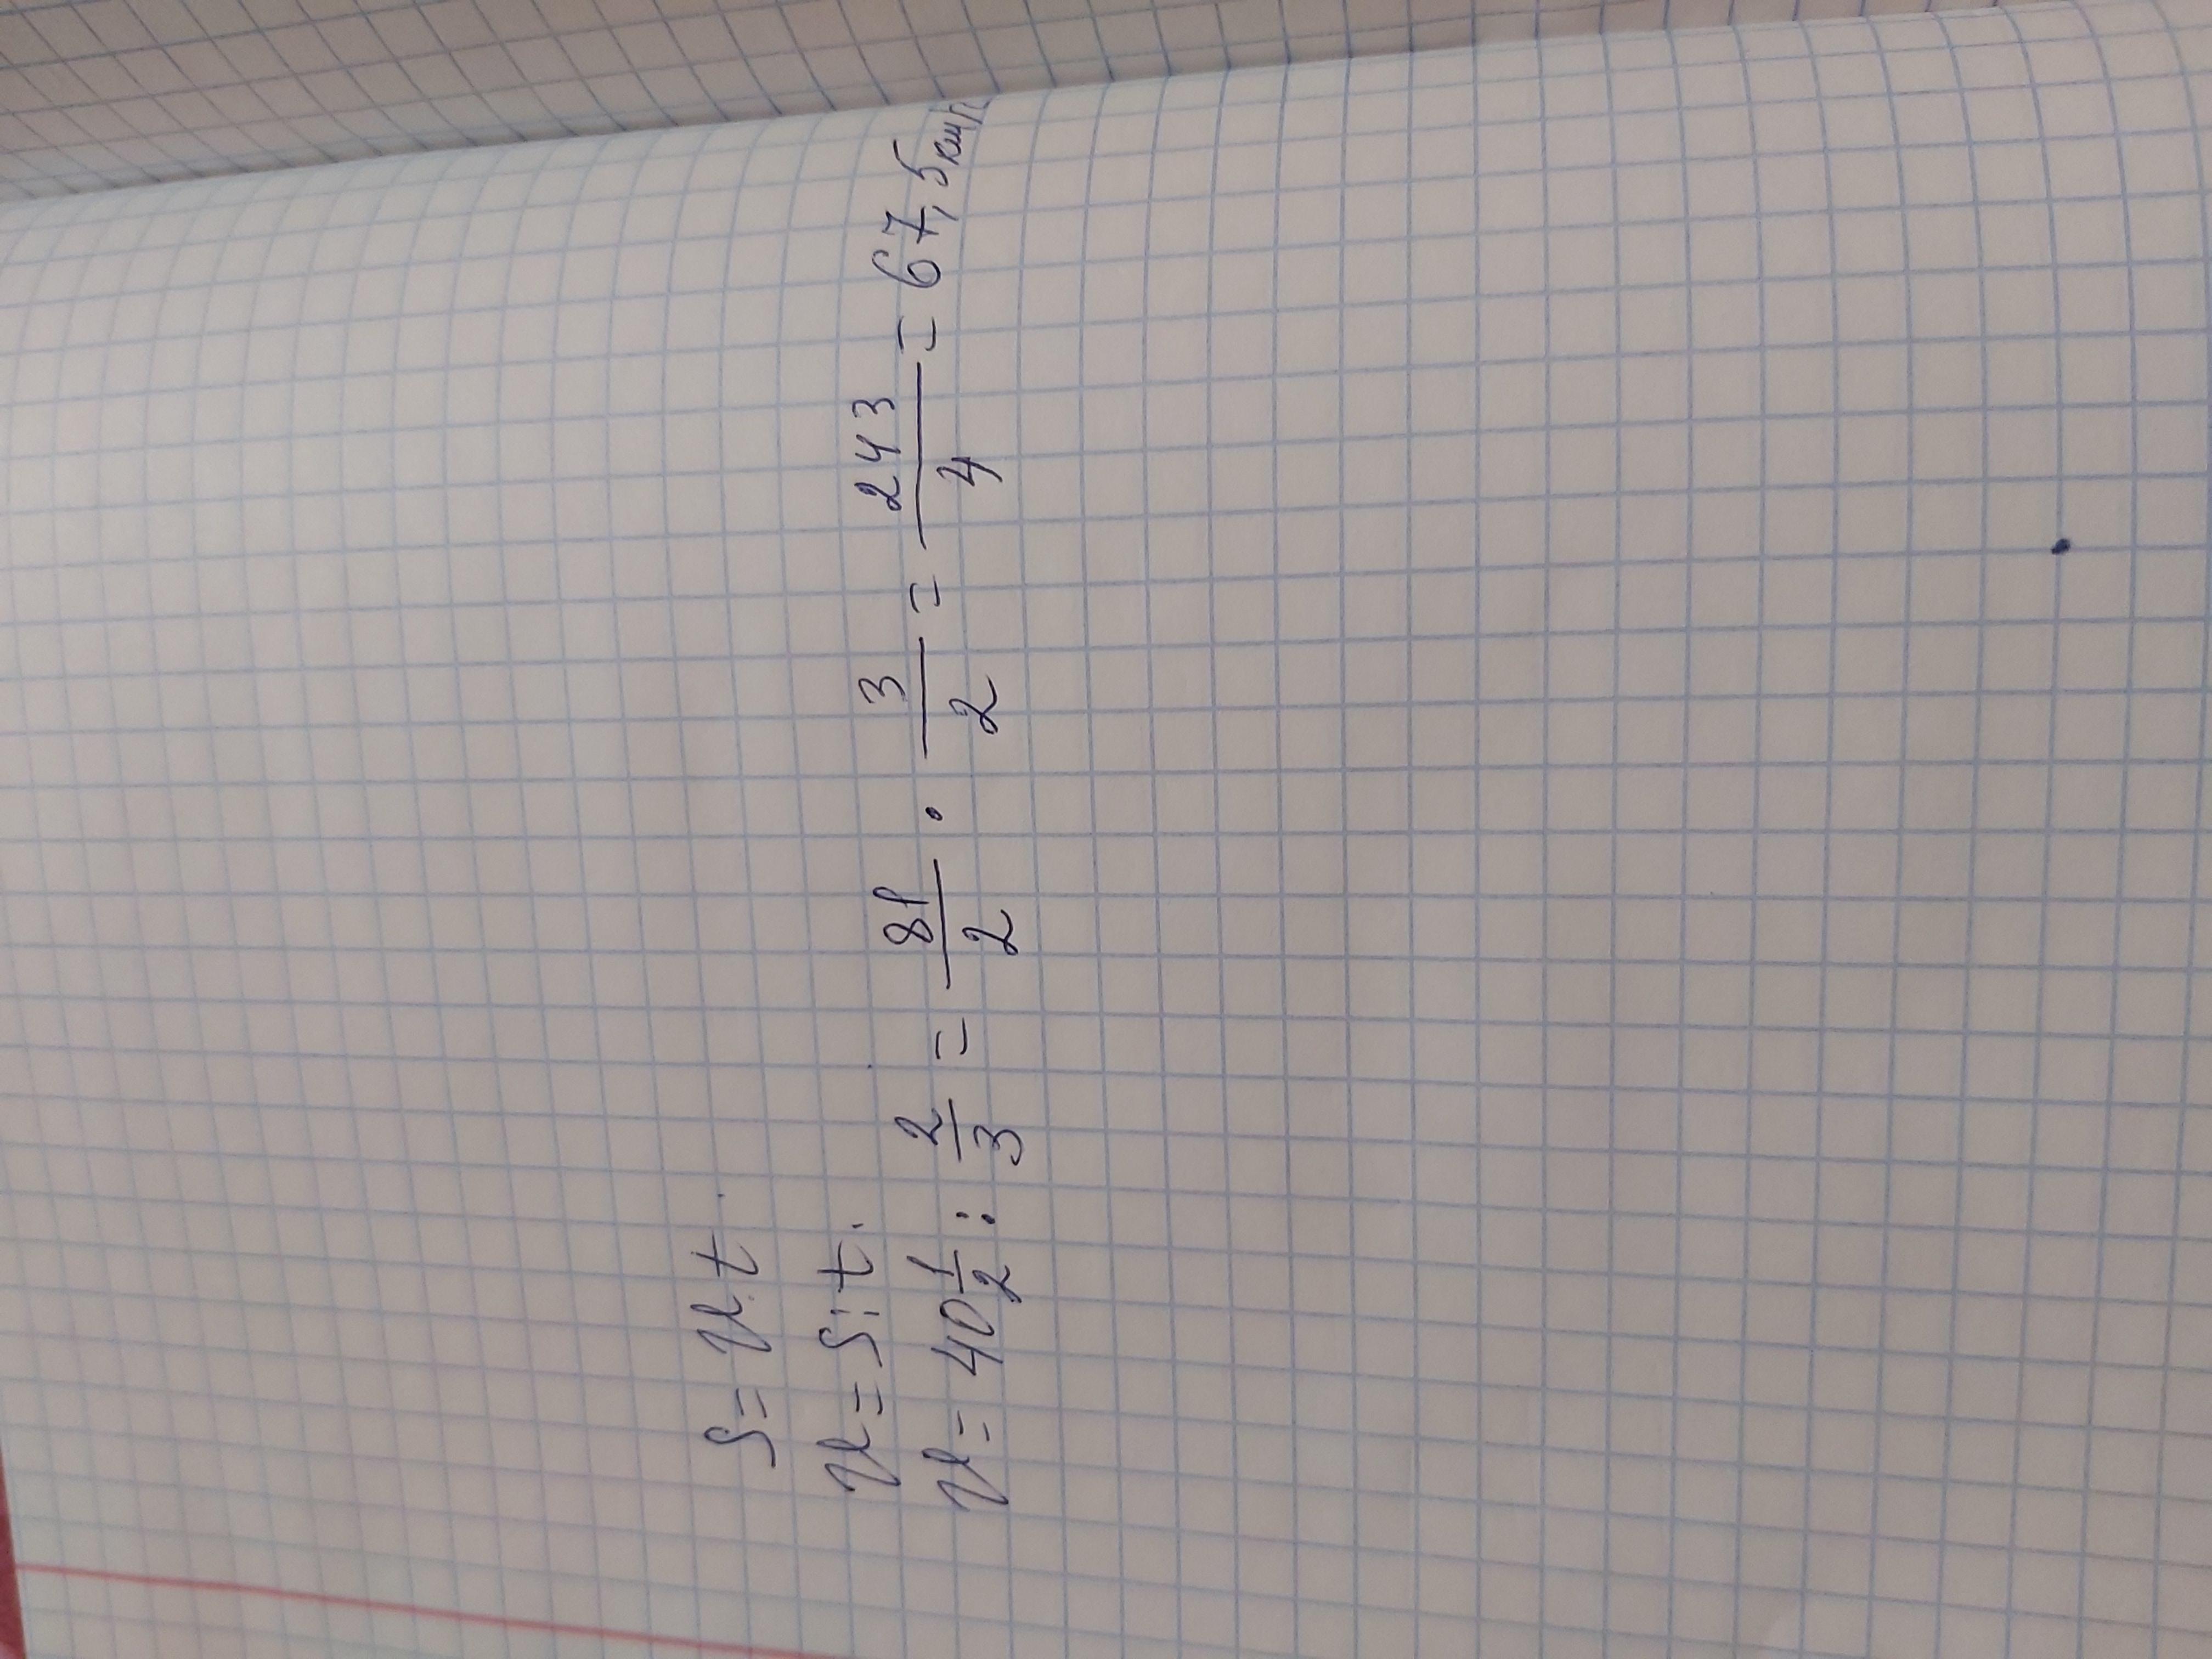 S = v · t
v = S : t
v = 40 1/2 : 2/3 = 81/2 · 3/2 = 243/4 = 67,5 км/